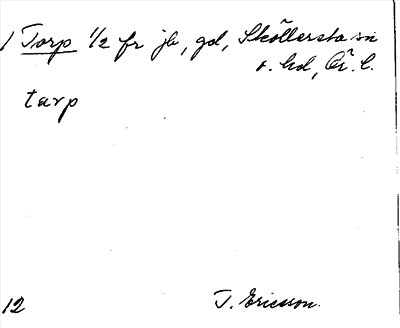 / Torp 1/2 fr jb, gd, Sköllersta sn
o. hd, Ör. l.
tarp
12 T. Ericsson.